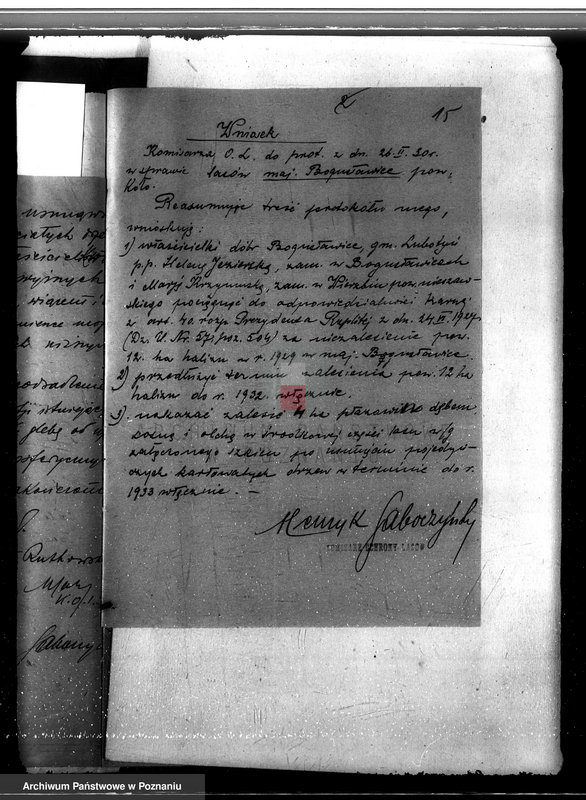 15
Wniosek
Komisarza O. L. do prot. z dn. 26 II. 30r.
w sprawie lasów maj. Bogusławice pow.
Koło.
Reasumując treść protokołu mego,
wnioskuję:
1) właścicielki dóbr Bogusławice, gm. Lubotyń
p.p. Helenę Jezierską, zam. w Bogusławicach
i Marję Krzymuską, zam. w pow. nieszaw-
skiego pociągnąć do odpowiedzialności karnej
w art. 40. rozp. Prezydenta Rzplitej z dn. 24 VI. 1927r
(Dz. U. Nr. 57 poz. 504) za niezalesienie pow.
12. ha halizn w r. 1929 w maj. Bogusławice.
2) przedłużyć termin zalesienia pow. 12 ha
halizn do r. 1932. włącznie.
3) nakazać zalesić 4 ha płazowizn dębem
sosną i olchą w środkowej części lasu w/g
załączonego szkicu po usunięciu pojedyń-
czych karłowatych drzew w terminie do r.
1933 włącznie. —
Henryk
KOMISARZ OCHRONY LASÓW
Archiwum Państwowe w Poznaniu